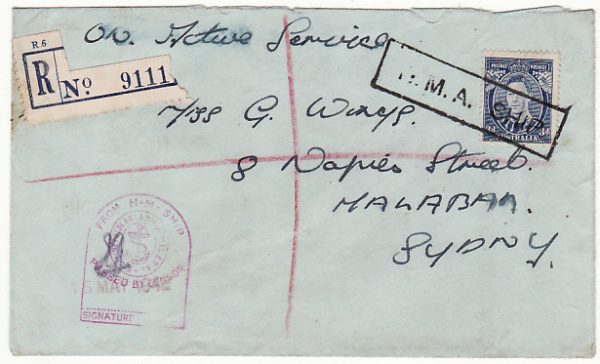 On Active Service
R.6
R No 9111
H.M.A. SHIP
POSTAGE
3d
AUSTRALIA
Miss G. Wings.
8 Napier Street.
MALABAR.
SYDNEY.
FROM H.M. SHIP
PASSED BY CENSOR
MAY 1942
SIGNATURE